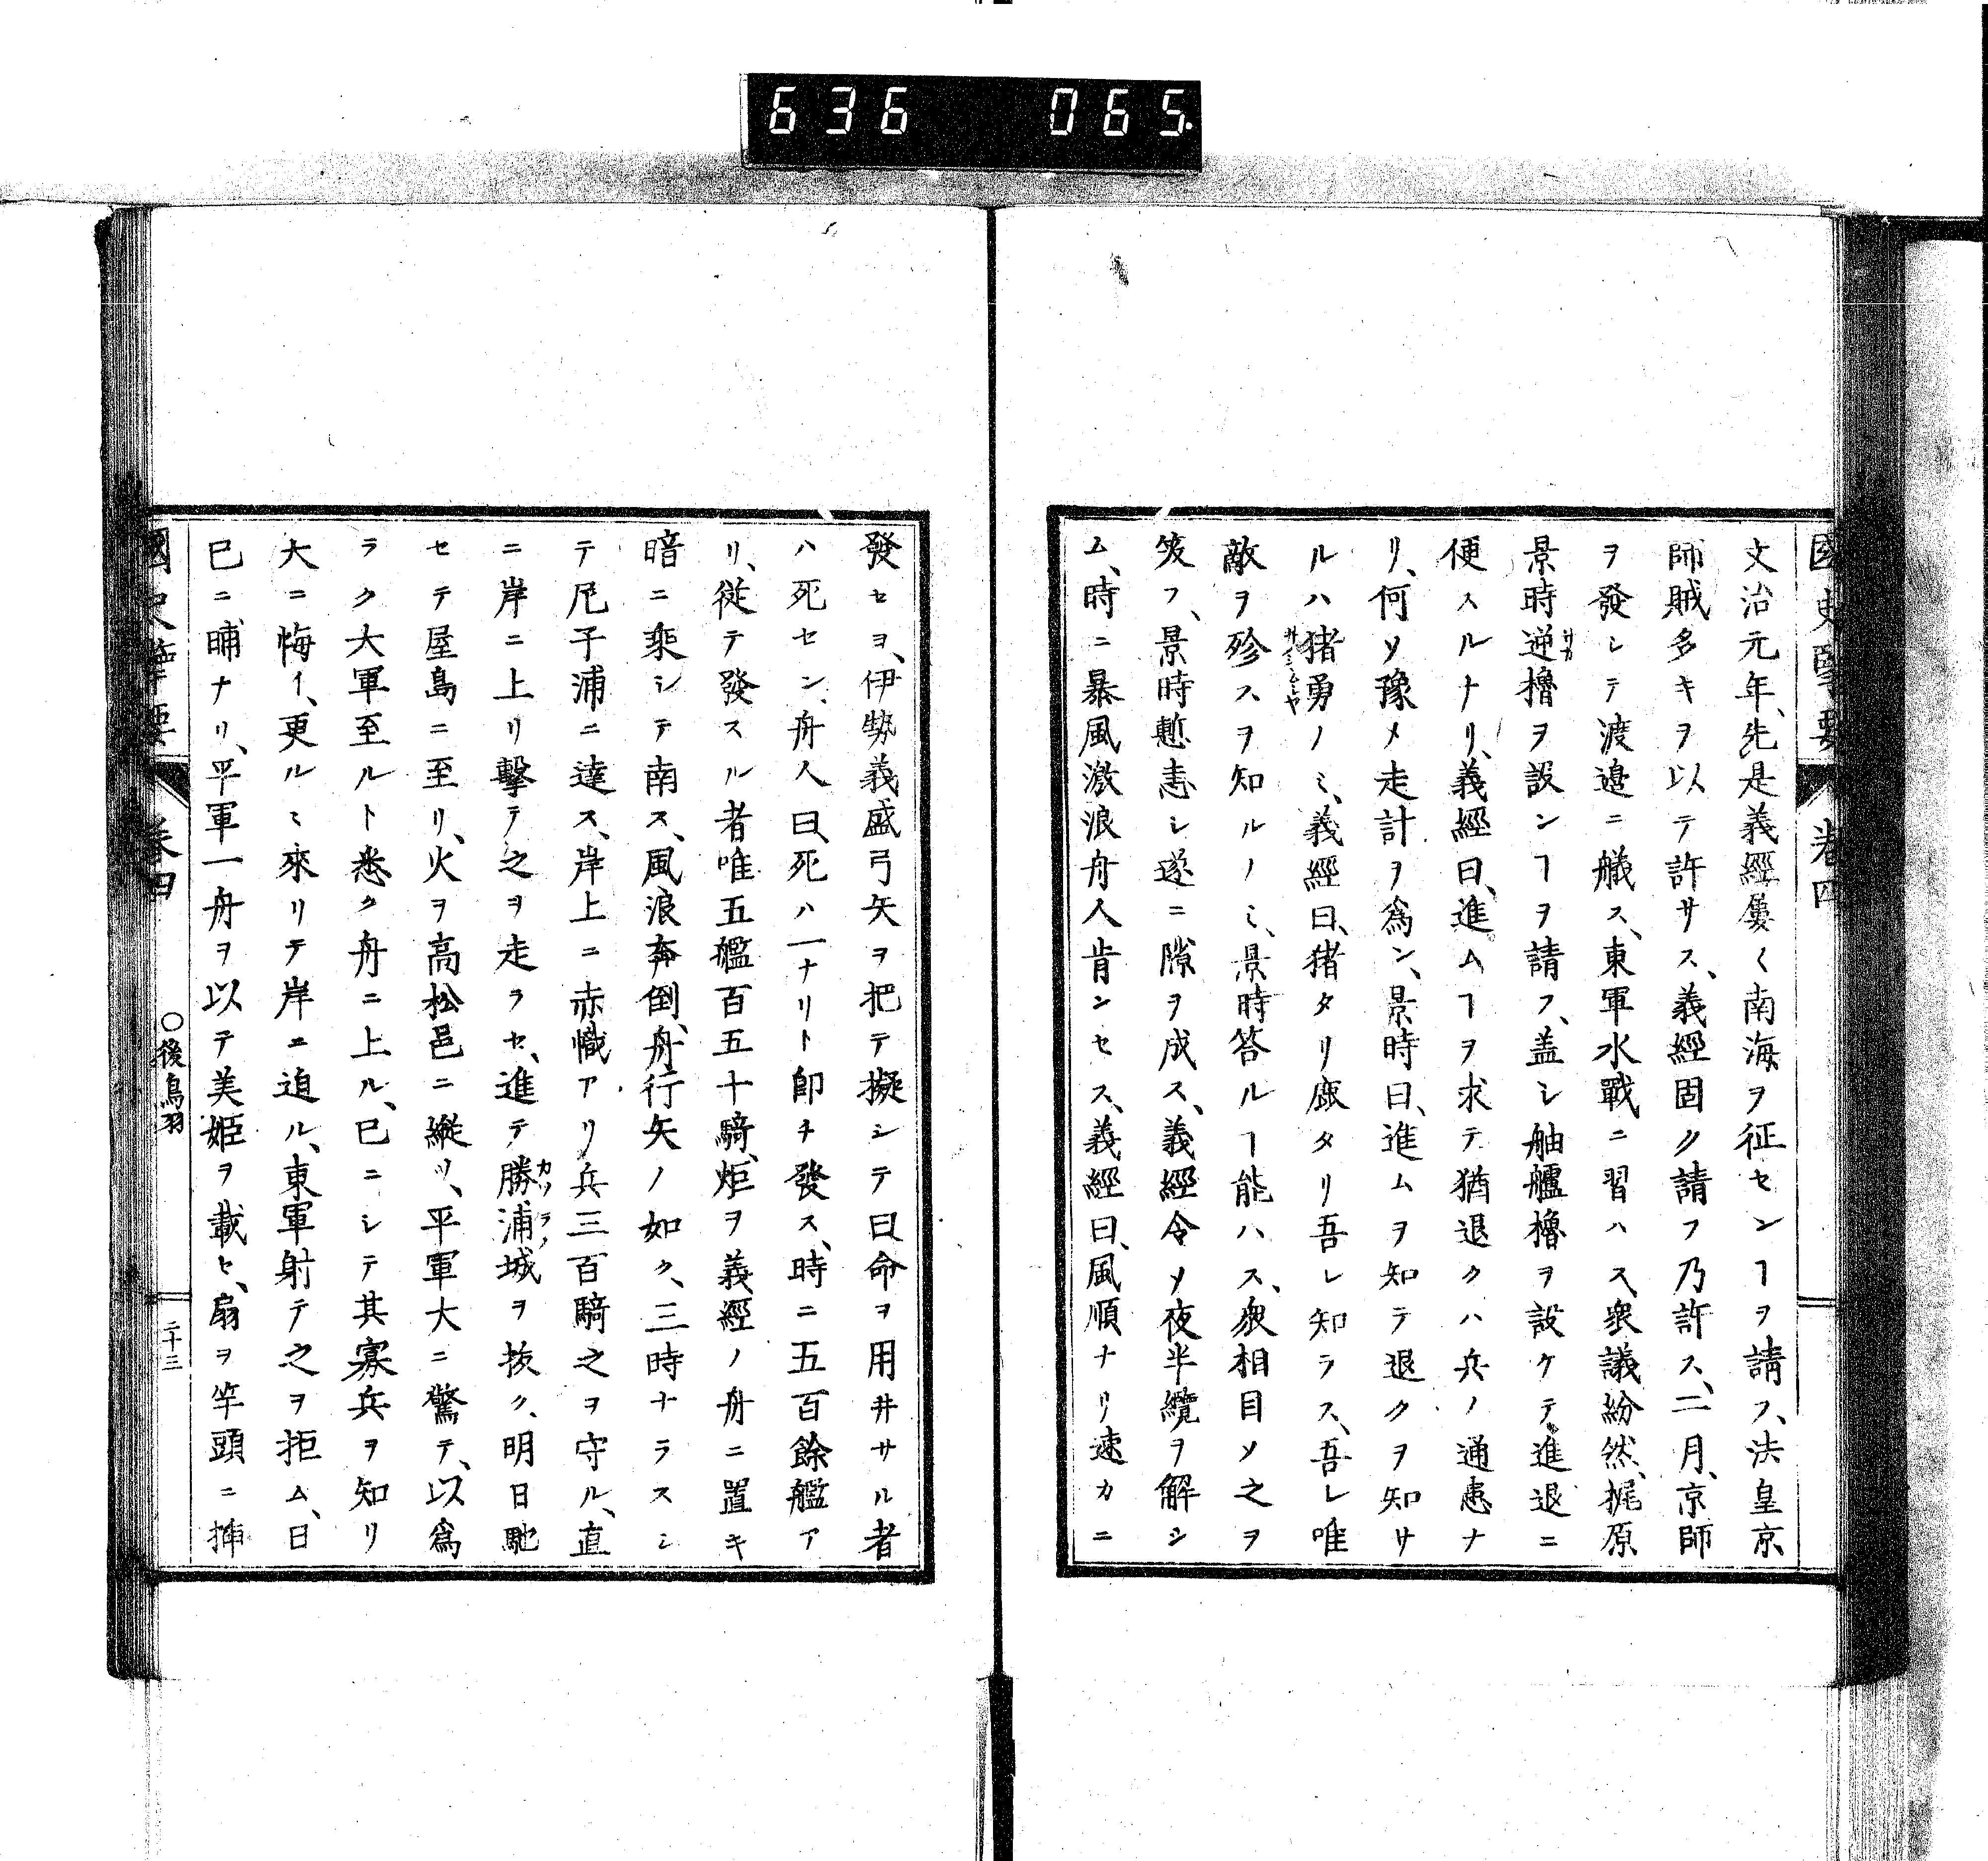 636 065
文治元年、先是義經屢〱南海ヲ征センヿヲ請フ、法皇京
師賊多キヲ以テ許サス、義經固ク請フ乃許ス、二月、京師
ヲ發シテ渡邉ニ艤ス、東軍水戰ニ習ハス、衆議紛然、梶原
景時逆櫓ヲ設ンヿヲ請フ、盖シ舳艫櫓ヲ設ケテ進退ニ
便スルナリ、義經曰、進ムヿヲ求テ猶退クハ兵ノ通患ナ
リ、何ソ豫メ走計ヲ爲ン、景時曰、進ムヲ知テ退クヲ知サ
ルハ猪勇ノミ、義經曰、猪タリ鹿タリ吾レ知ラス、吾レ唯
敵ヲ殄スヲ知ルノミ、景時答ルヿ能ハス、衆相目ソ之ヲ
笑フ、景時慙恚シ遂ニ隙ヲ成ス、義經令ソ夜半纜ヲ解シ
ム、時ニ暴風激浪舟人肯ンセス、義經曰、風順ナリ速カニ
發セヨ、伊勢義盛弓矢ヲ把テ擬シテ曰命ヲ用井サル者
ハ死セン、舟人曰、死ハ一ナリト卽チ發ス、時ニ五百餘艦ア
リ、從テ發スル者唯五艦百五十騎、炬ヲ義經ノ舟ニ置キ
暗ニ乘シテ南ス、風浪奔倒、舟行矢ノ如ク、三時ナラスシ
テ尼子浦ニ達ス、岸上ニ赤幟アリ兵三百騎之ヲ守ル、直
ニ岸ニ上リ擊テ之ヲ走ラセ、進テ勝浦城ヲ拔ク、明日馳
セテ屋島ニ至リ、火ヲ高松邑ニ縱ツ、平軍大ニ驚テ、以爲
ラク大軍至ルト悉ク舟ニ上ル、已ニシテ其寡兵ヲ知リ
大ニ悔イ、更ルミ來リテ岸ニ迫ル、東軍射テ之ヲ拒ム、日
已ニ晡ナリ、平軍一舟ヲ以テ美姬ヲ載セ、扇ヲ竿頭ニ揷
卷四
〇後鳥羽
二十三